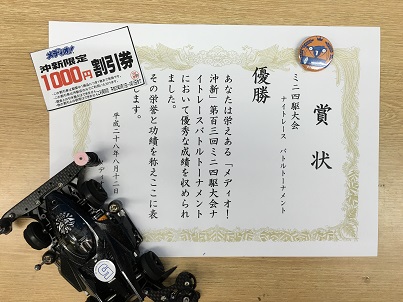 メディオ!
沖新限定
1000円割引券
賞状
ミニ四駆大会
ナイトレース バトルトーナメント
優勝
あなたは栄えある「メディオ!
沖新」第百三回ミニ四駆大会ナ
イトレースバトルトーナメント
において優秀な成績を収められ
ました。
その栄誉と功績を称えここに表
します。
平成二十八年八月十二日